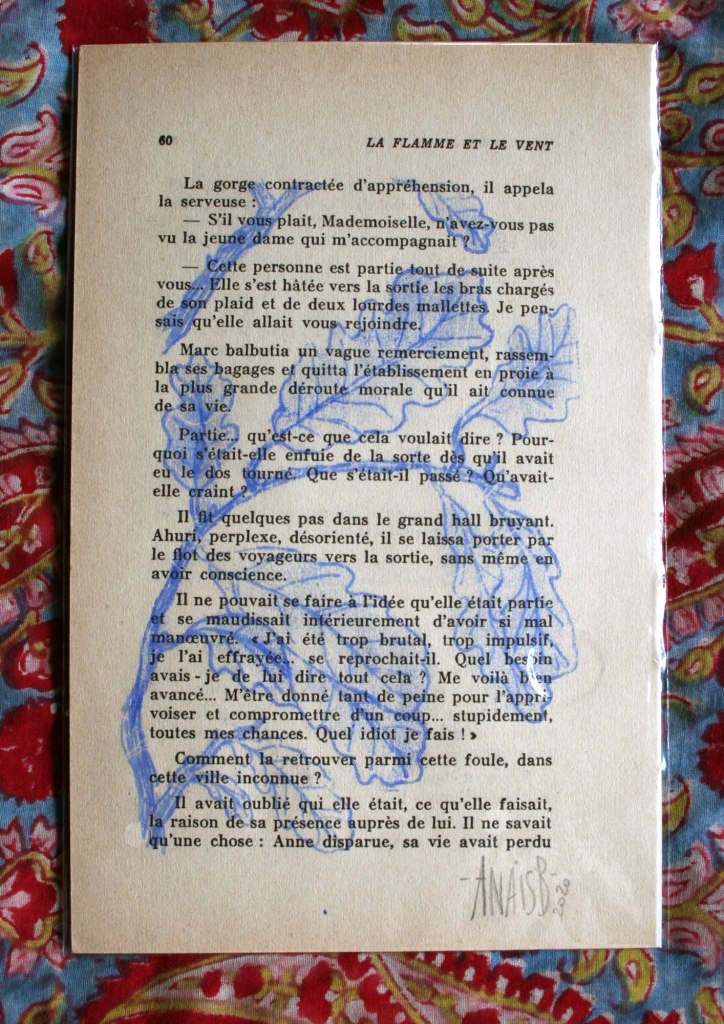 60 LA FLAMME ET LE VENT
La gorge contractée d'appréhension, il appela
la serveuse :
— S'il vous plait, Mademoiselle, n'avez-vous pas
vu la jeune dame qui m'accompagnait ?
— Cette personne est partie tout de suite après
vous... Elle s'est hâtée vers la sortie les bras chargés
de son plaid et de deux lourdes mallettes. Je pen-
sais qu'elle allait vous rejoindre.
Marc balbutia un vague remerciement, rassem-
bla ses bagages et quitta l'établissement en proie à
la plus grande déroute morale qu'il ait connue
de sa vie.
Partie... qu'est-ce que cela voulait dire ? Pour-
quoi s'était-elle enfuie de la sorte dès qu'il avait
eu le dos tourné. Que s'était-il passé ? Qu'avait-
elle craint ?
Il fit quelques pas dans le grand hall bruyant.
Ahuri, perplexe, désorienté, il se laissa porter par
le flot des voyageurs vers la sortie, sans même en
avoir conscience.
Il ne pouvait se faire à l'idée qu'elle était partie
et se maudissait intérieurement d'avoir si mal
manœuvré. « J'ai été trop brutal, trop impulsif,
je l'ai effrayée... se reprochait-il. Quel besoin
avais-je de lui dire tout cela ? Me voilà bien
avancé... M'être donné tant de peine pour l'appri-
voiser et compromettre d'un coup... stupidement,
toutes mes chances. Quel idiot je fais ! »
Comment la retrouver parmi cette foule, dans
cette ville inconnue ?
Il avait oublié qui elle était, ce qu'elle faisait,
la raison de sa présence auprès de lui. Il ne savait
qu'une chose : Anne disparue, sa vie avait perdu
- ANAÏS B - 2020